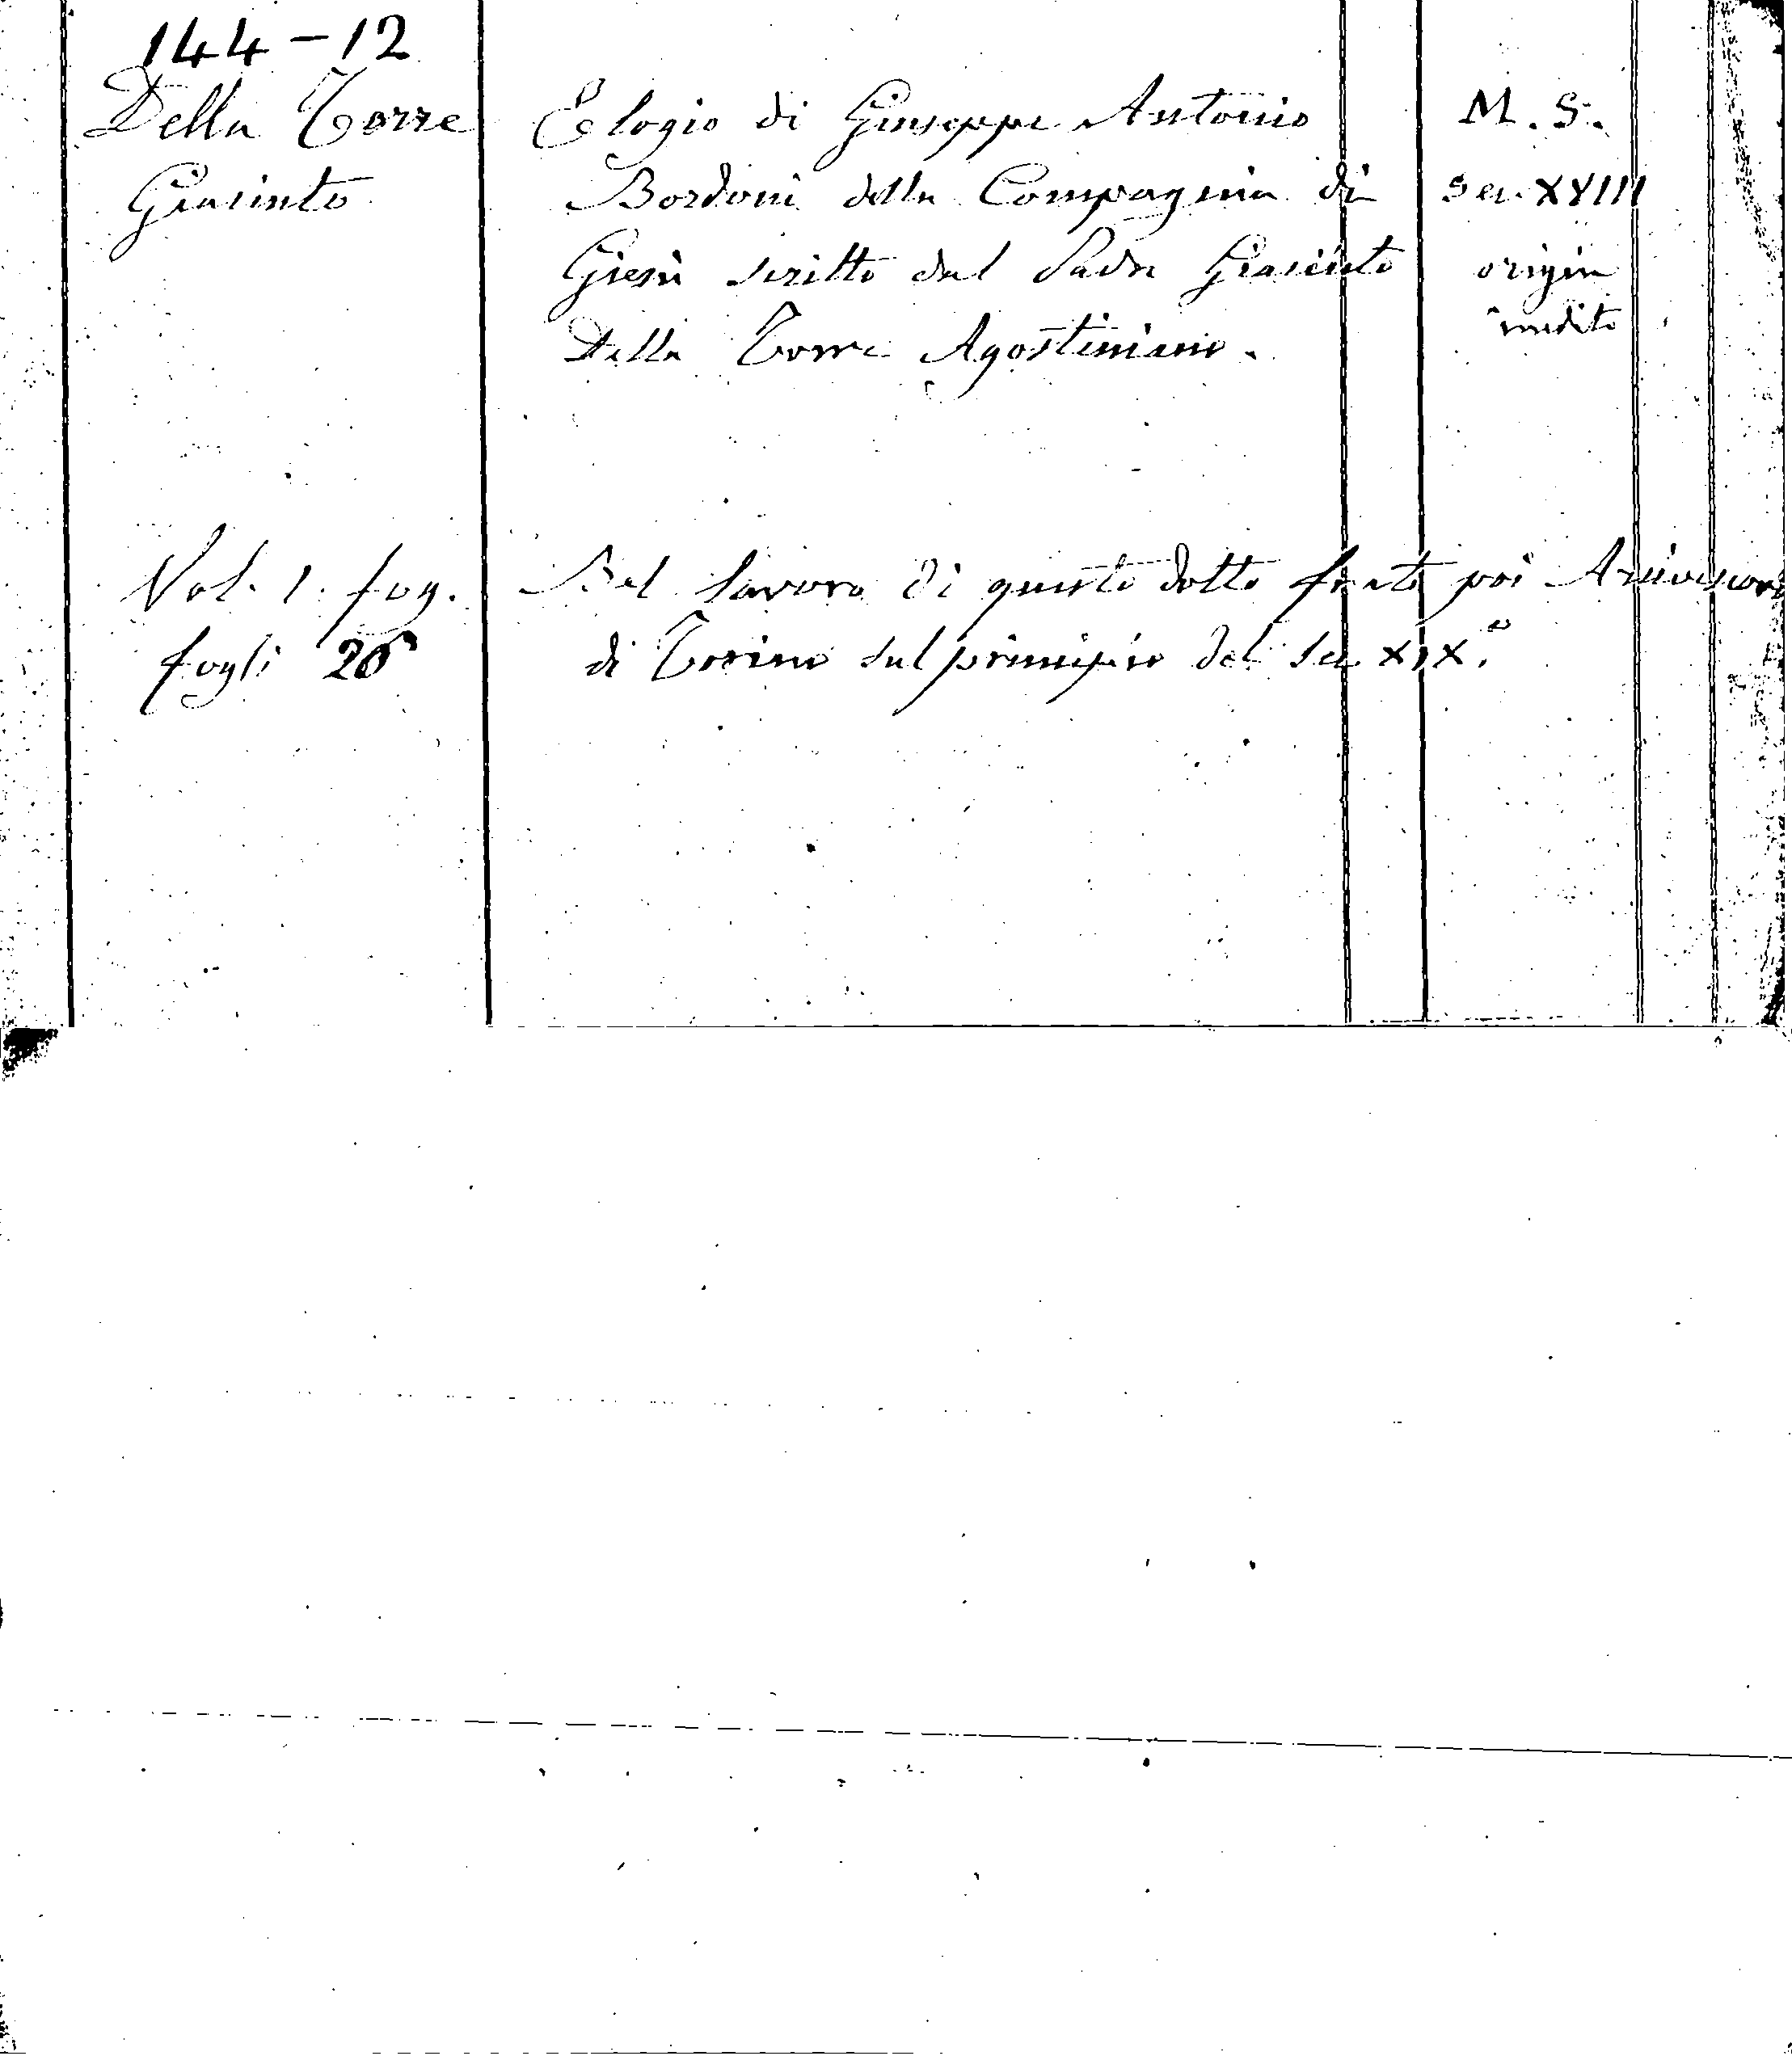 144-12
Della Torre
Giacinto
Elogio di Giuseppe Antonio
Bordoni della Compagnia di
Giesù scritto dal Padre Giacinto
Della Torre Agostiniano.
M. S.
Sec. XVIII
origin
inedito
Vol. 1. fog.
fogli 26
Bel lavoro di questo dotto frate poi Arcivescovo
di Torino sul principio del sec XIX.º